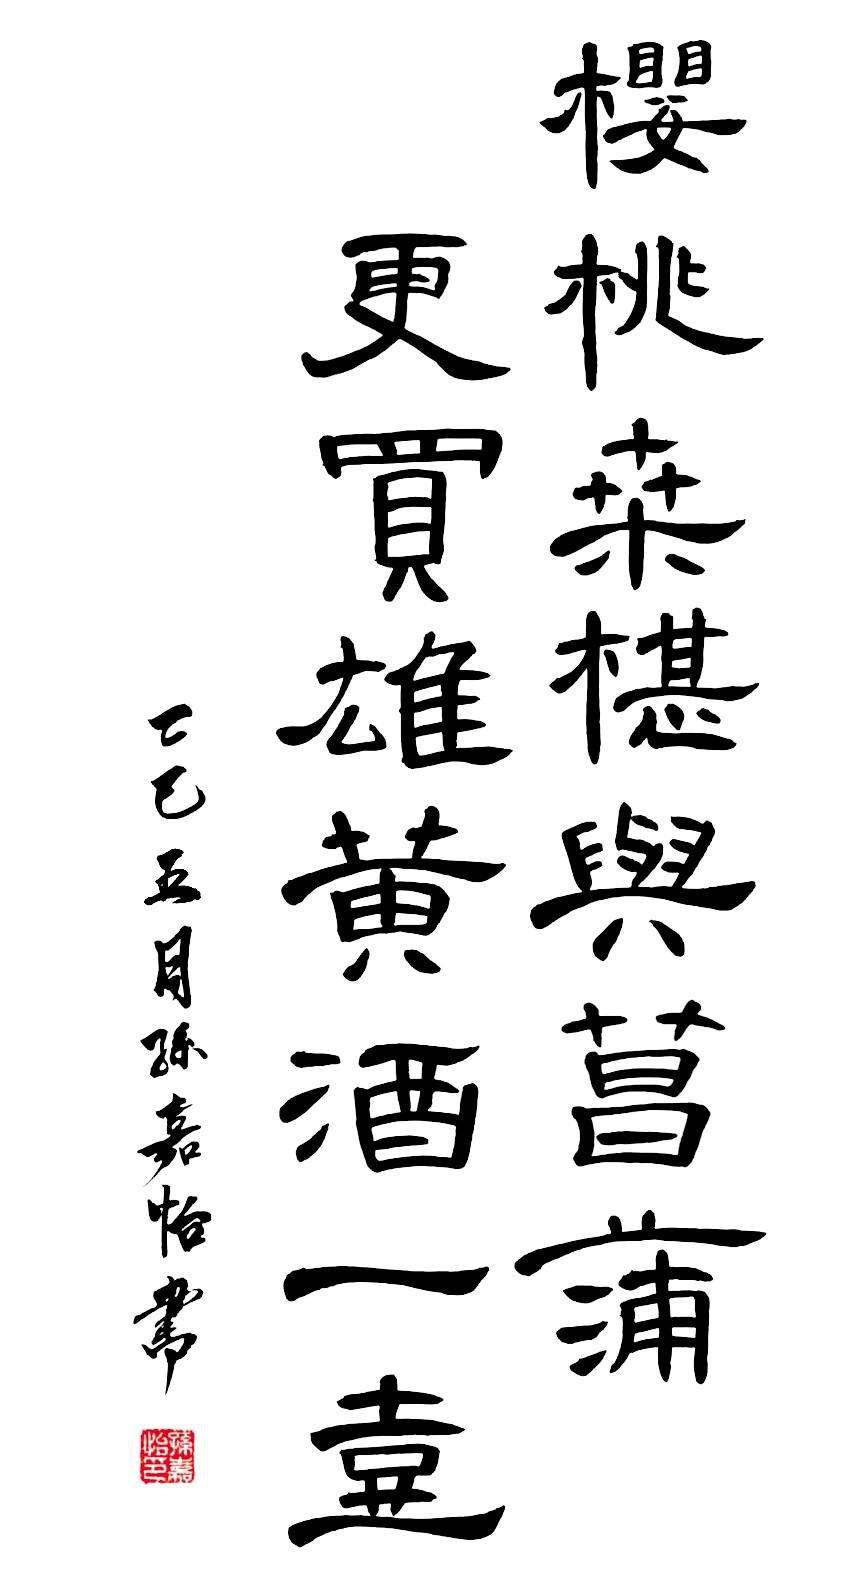 櫻桃桒椹與菖蒲
更買雄黄酒一壺
乙巳五月孫嘉怡書
孫嘉怡印